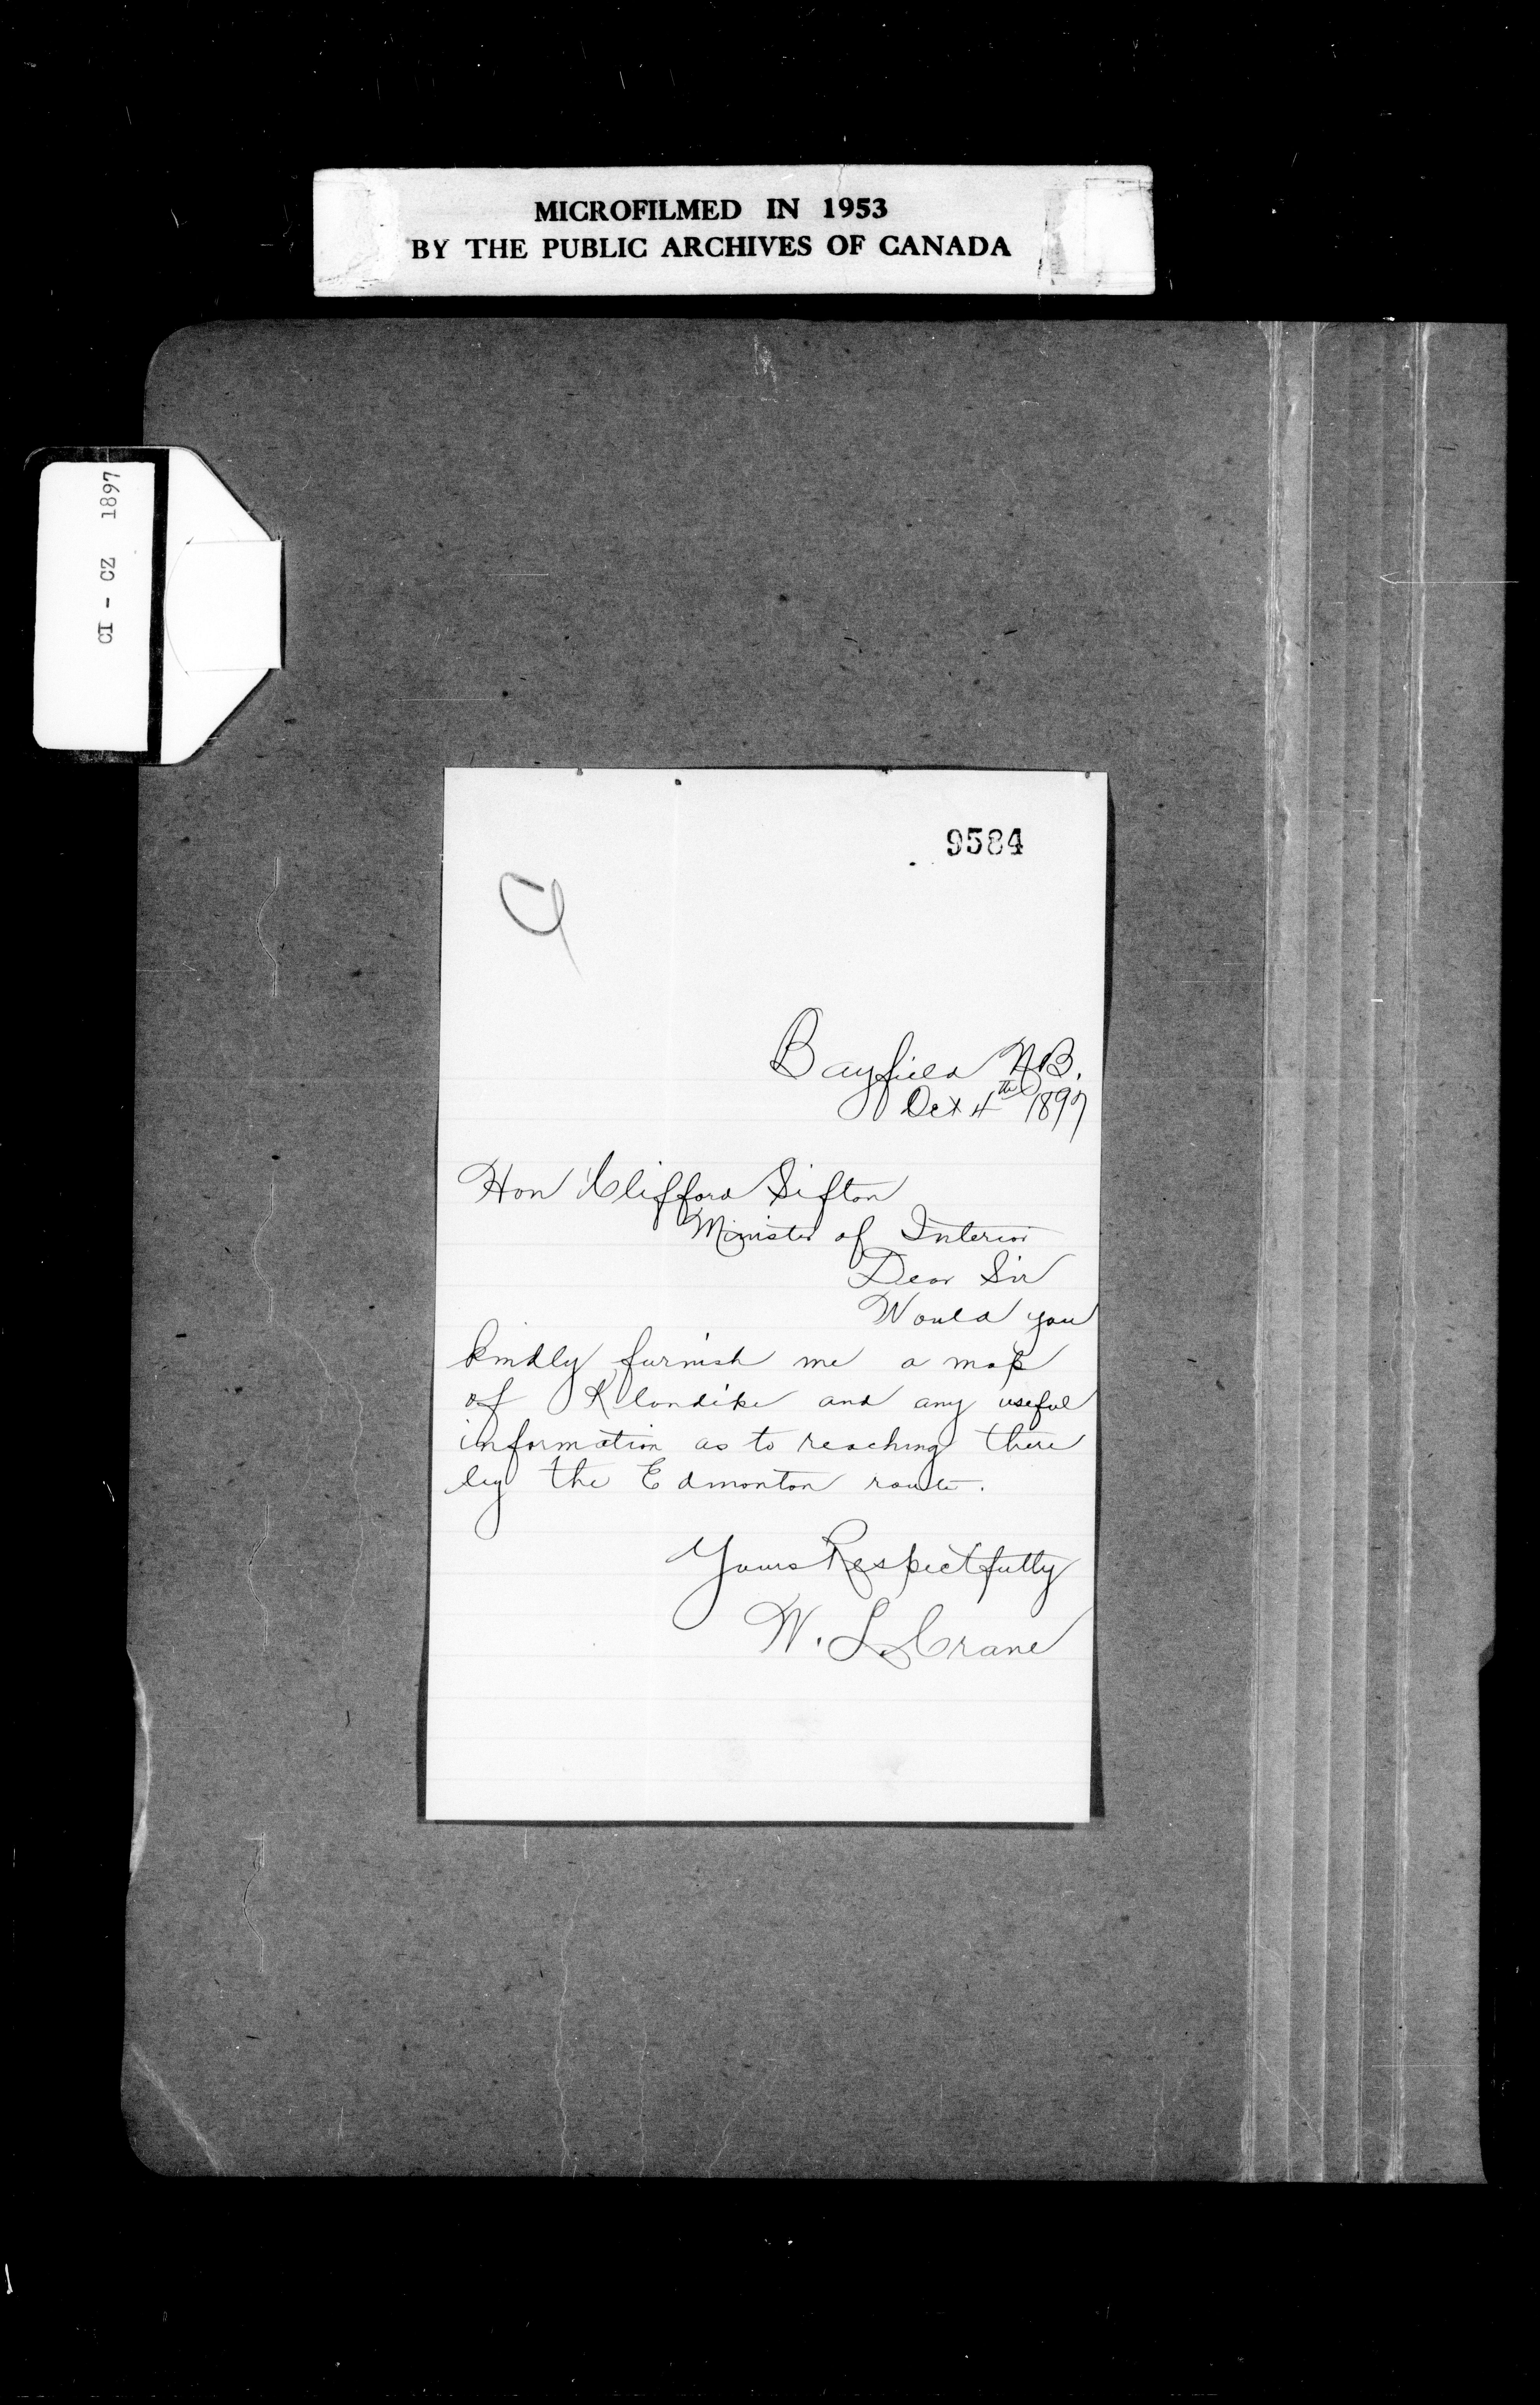 MICROFILMED IN 1953
BY THE PUBLIC ARCHIVES OF CANADA
CI - CZ 1897
9584
Bayfield N.B.
Oct 4th 1897
Hon Clifford Sifton
Minister of Interior
Dear Sir
Would you
kindly furnish me a map
of Klondike and any useful
information as to reaching there
by the Edmonton route.
Yours Respectfully
W. L. Crane